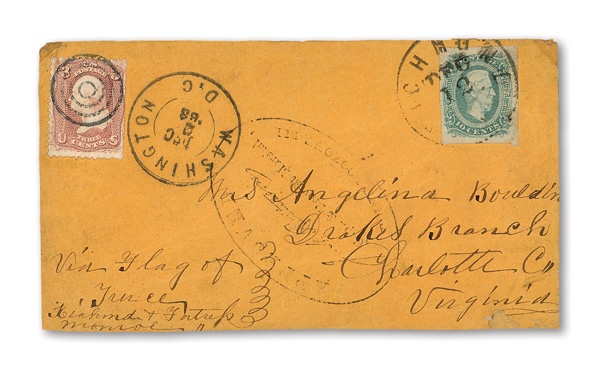 3 3
U S POSTAGE
THREE
CENTS
WASHINGTON D.C
DEC
'63
RICHMOND
DEC
12
10 CENTS
Mrs Angelina Bouldin
Drakes Branch
Charlotte Co
Virginia
Via Flag of
Truce
Richmd & Fortress
Monroe "